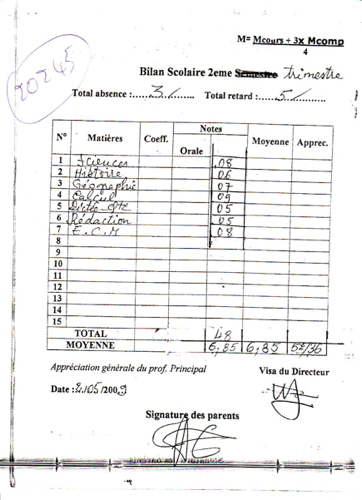 M= Mcours + 3x Mcomp
4
20245
Bilan Scolaire 2eme Semestre trimestre
Total absence :..... 3/ ..... Total retard :..... 5/ .....
N° Matières Coeff. Notes Moyenne Apprec.
Orale
1 Sciences 08
2 Histoire 06
3 Géographie 07
4 Calcul 09
5 05
6 Rédaction 05
7 E.C.M 08
8
9
10
11
12
13
14
15
TOTAL 48
MOYENNE 6,85 6,85 5e/36
Appréciation générale du prof. Principal Visa du Directeur
Date :2/05/2009
Signature des parents